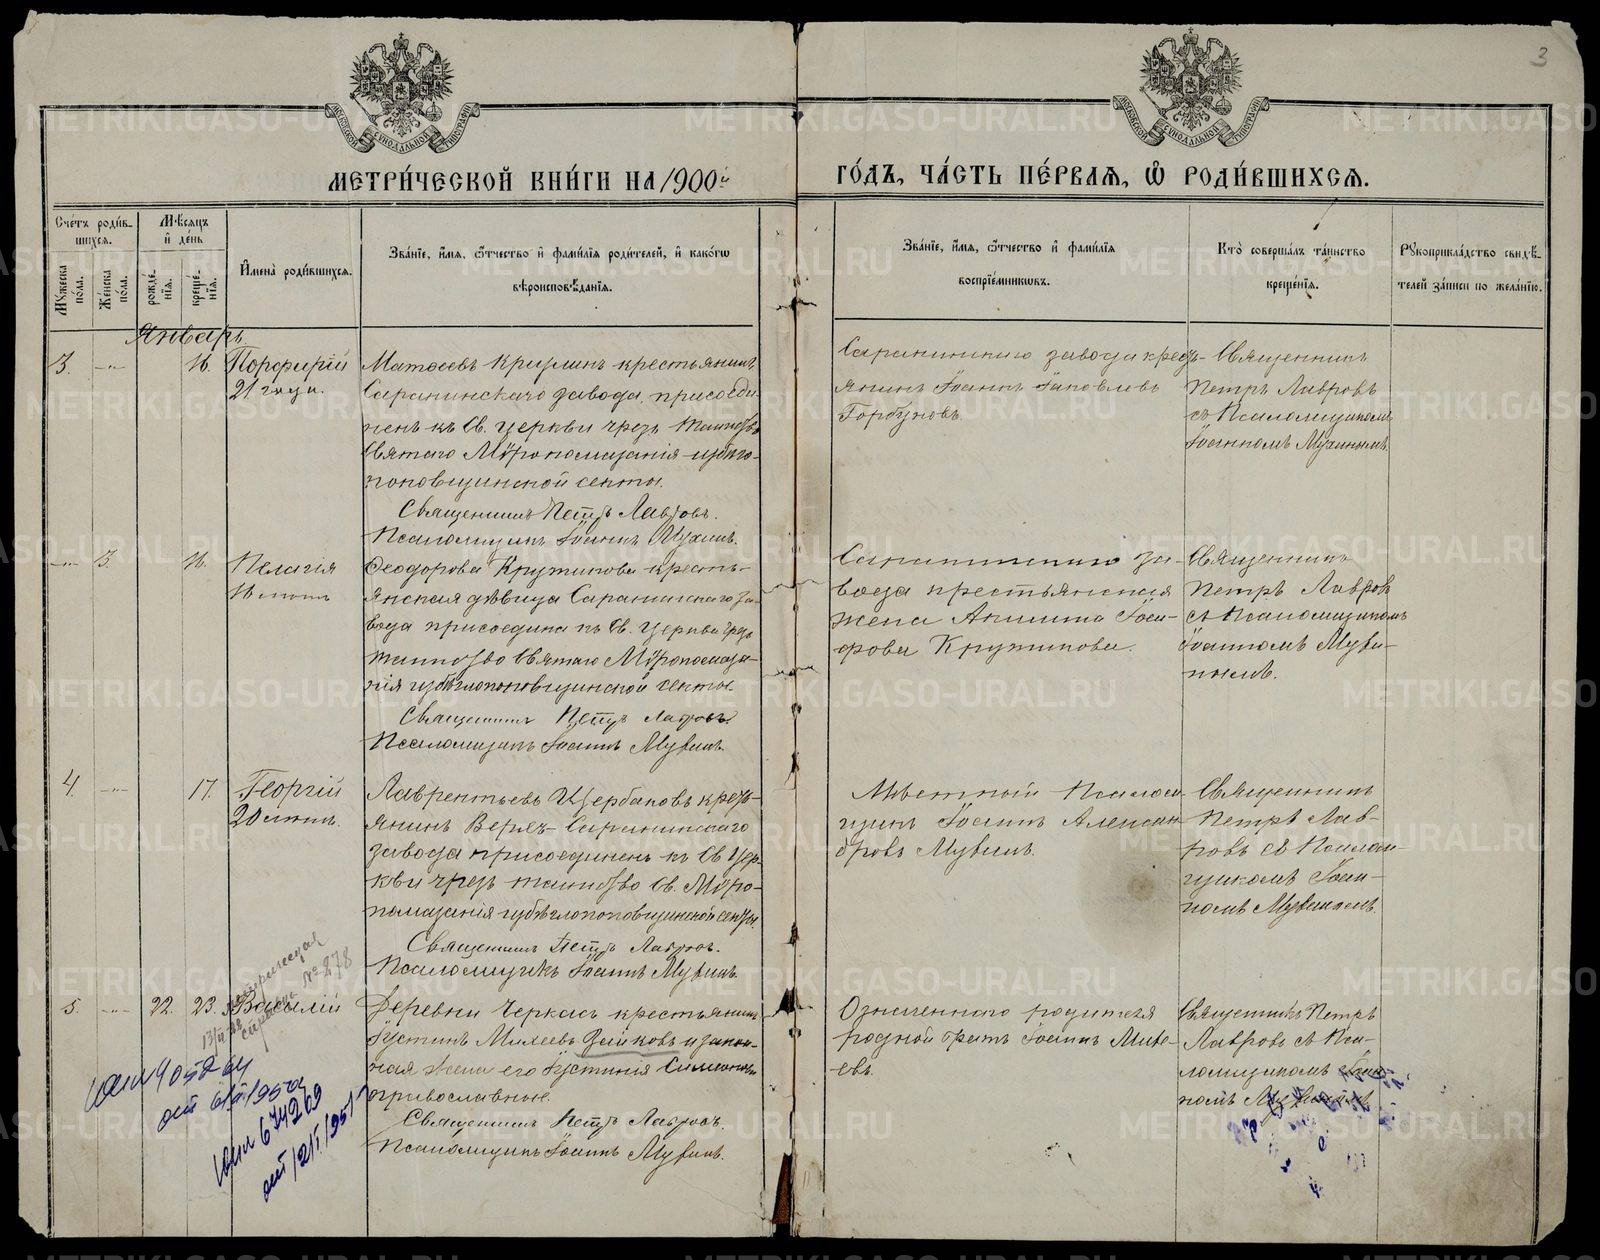 3
МОСКОВСКОЙ СѴНОДАЛЬНОЙ ТИПОГРАФІИ
МОСКОВСКОЙ СѴНОДАЛЬНОЙ ТИПОГРАФІИ
МЕТРИ́ЧЕСКОЙ КНИ́ГИ НА 1900й
ГО́ДЪ, ЧА́СТЬ ПЕ́РВАЯ, Ѡ҆ РОДИ́ВШИХСЯ.
Сче́тъ роди́в-
шихся.
Мѣсяцъ
и҆ де́нь
Мꙋжеска по́ла.
Же́нска по́ла.
рожде́-
нїя.
креще́-
нїя.
И҆мена̀ роди́вшихся.
Зва́нїе, и҆́мя, ѻ҆́тчество и҆ фами́лїѧ роди́телей, и҆ како́гѡ
вѣроисповѣ́данїя.
Зва́нїе, и҆́мя, ѻ҆́тчество и҆ фами́лїя
воспрїе́мникѡвъ.
Кто̀ соверша́лъ та́инство
креще́нїя.
Рꙋкоприкла́дство свидѣ́-
телей за́писи по жела́нїю.
Январь
3. —„— 16. Порфирій
21 года.
Матѳеевъ крестьянинъ
Саранинскаго завода, присоеди-
ненъ къ Св. церкви чрезъ таинство
Святаго Мѵропомазанія изъ бѣгло-
поповщинской секты.
Священникъ Петръ Лавровъ.
Псаломщикъ Іоаннъ Мухинъ.
Саранинскаго завода кресть-
янинъ Іоаннъ Іаковлевъ
Горбуновъ.
Священникъ
Петръ Лавровъ
съ Псаломщикомъ
Іоанномъ Мухинымъ.
—„— 3. 16. Пелагія
Ѳеодорова Кружинова кресть-
янская дѣвица Саранинскаго за-
вода присоединена къ Св. Церкви чрезъ
таинство Святаго Мѵропомаза-
нія изъ бѣглопоповщинской секты.
Священникъ Петръ Лавровъ.
Псаломщикъ Іоаннъ Мухинъ.
Саранинскаго за-
вода крестьянская
жена Іоси-
фова Кружинова.
Священникъ
Петръ Лавровъ
съ Псаломщикомъ
Іоанномъ Мухи-
нымъ.
4. —„— 17. Георгій
20 лѣтъ.
Лаврентьевъ Щербаковъ кресть-
янинъ Верхъ-Саранинскаго
завода присоединенъ къ Св. Цер-
кви чрезъ таинство Св. Мѵро-
помазанія изъ бѣглопоповщинской секты.
Священникъ Петръ Лавровъ.
Псаломщикъ Іоаннъ Мухинъ.
Мѣстный Псалом-
щикъ Іоаннъ Алексан-
дровъ Мухинъ.
Священникъ
Петръ Лав-
ровъ съ Псалом-
щикомъ Іоан-
номъ Мухинымъ.
5. —„— 22. 23. Василій
№ 278
Деревни Черкасъ крестьянинъ
Іустинъ Михеевъ Зыковъ и закон-
ная жена его Іустинія Симеонова
православные.
Священникъ Петръ Лавровъ.
Псаломщикъ Іоаннъ Мухинъ.
Означеннаго родителя
родной братъ Іоаннъ Михе-
евъ.
Священникъ Петръ
Лавровъ съ Пса-
ломщикомъ Іоан-
номъ Мухинымъ.